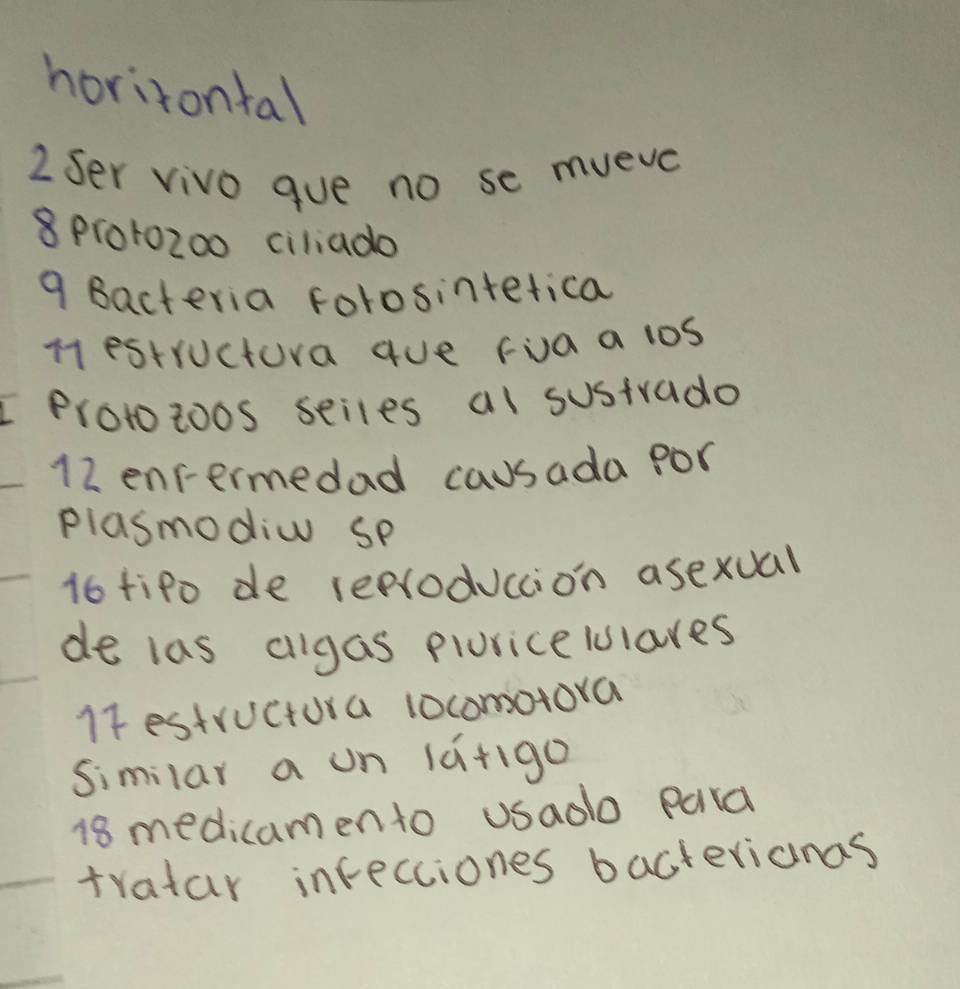 horizontal
2 Ser vivo que no se mueve
8 Protozoo ciliado
9 Bacteria fotosintetica
11 estructura que fija a los
Protozoos seiles al sustrado
12 enfermedad causada por
Plasmodiw sp
16 tipo de reproducción asexual
de las algas pluricelulares
17 estructura locomotora
Similar a un látigo
18 medicamento usado para
tratar infecciones bacterianas